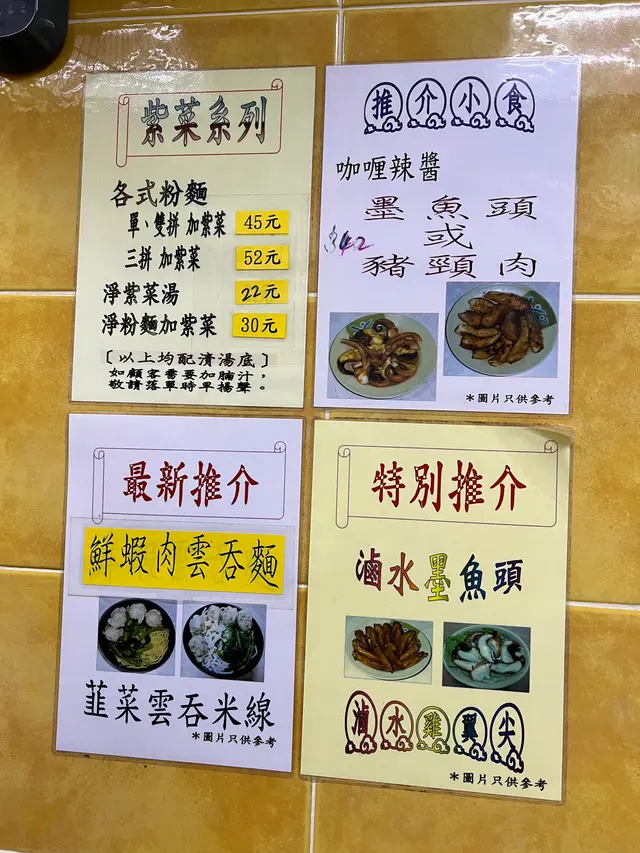 紫菜系列
各式粉麵
單、雙拼 加紫菜 45元
三拼 加紫菜 52元
淨紫菜湯 22元
淨粉麵加紫菜 30元
〔以上均配清湯底〕
如顧客需要加腩汁，
敬請落單時早揚聲。
推介小食
咖喱辣醬
墨魚頭
或
$42
豬頸肉
*圖片只供參考
最新推介
鮮蝦肉雲吞麵
韮菜雲吞米線
*圖片只供參考
特別推介
滷水墨魚頭
滷水雞翼尖
*圖片只供參考